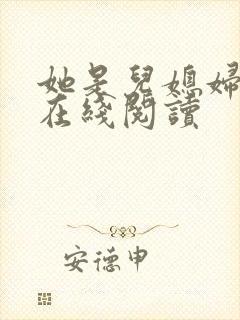 她是兒媳婦
在綫閱讀
安德申